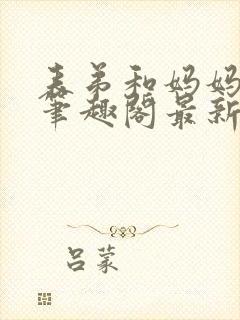 表弟和妈妈
笔趣阁最新
吕蒙